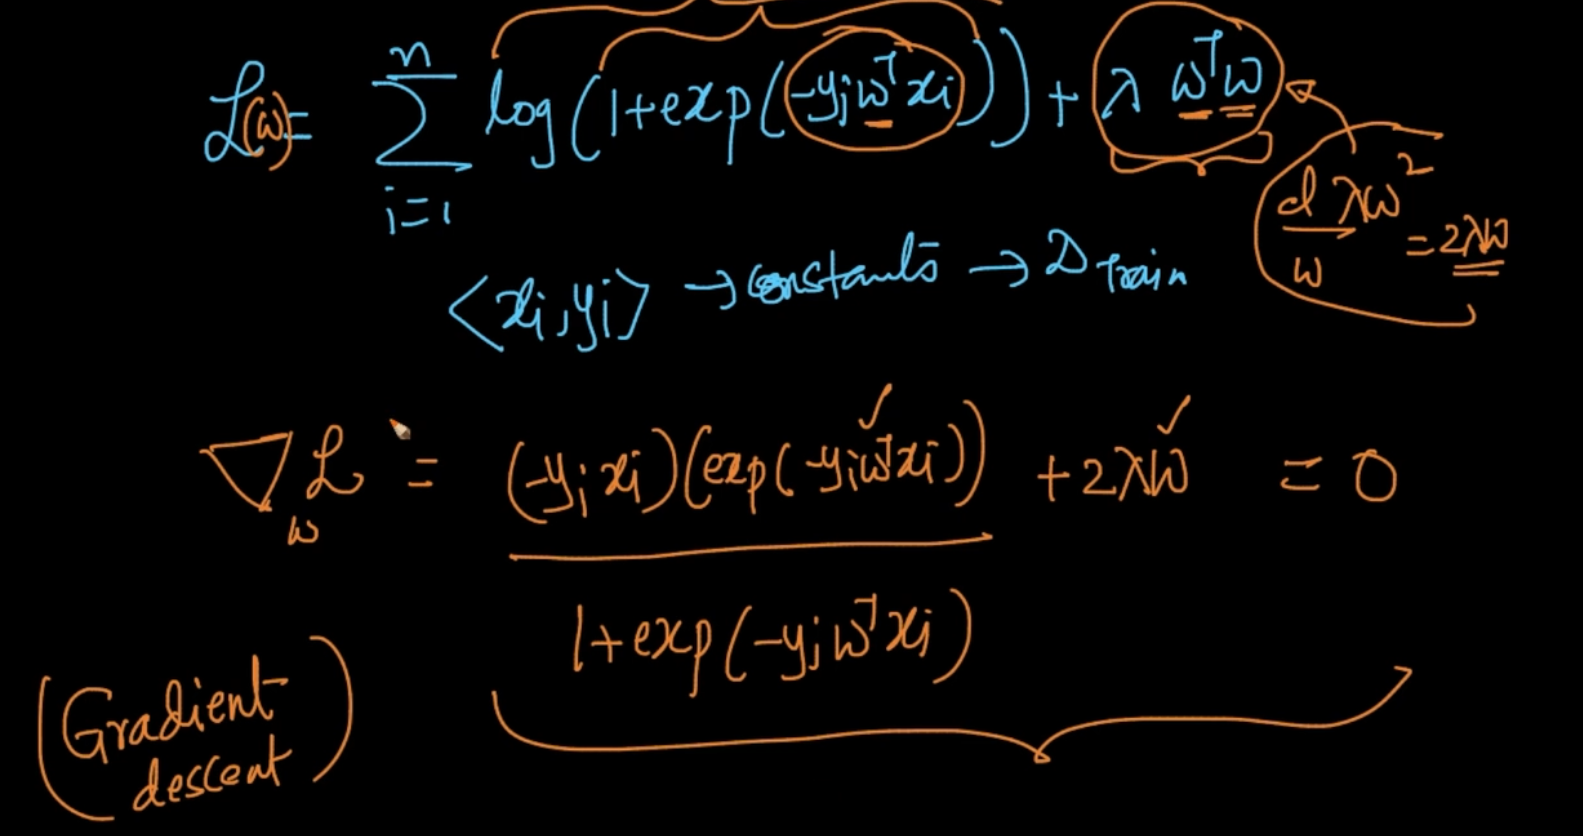 ℒ(w) = ∑_{i=1}^{n} log(1+exp(-yᵢwᵀxᵢ)) + λ wᵀw
d λw² / w = 2λw
<xᵢ,yᵢ> → constants → D Train
∇_w ℒ = (-yᵢxᵢ)(exp(-yᵢwᵀxᵢ)) / 1+exp(-yᵢwᵀxᵢ) + 2λw = 0
(Gradient
descent)